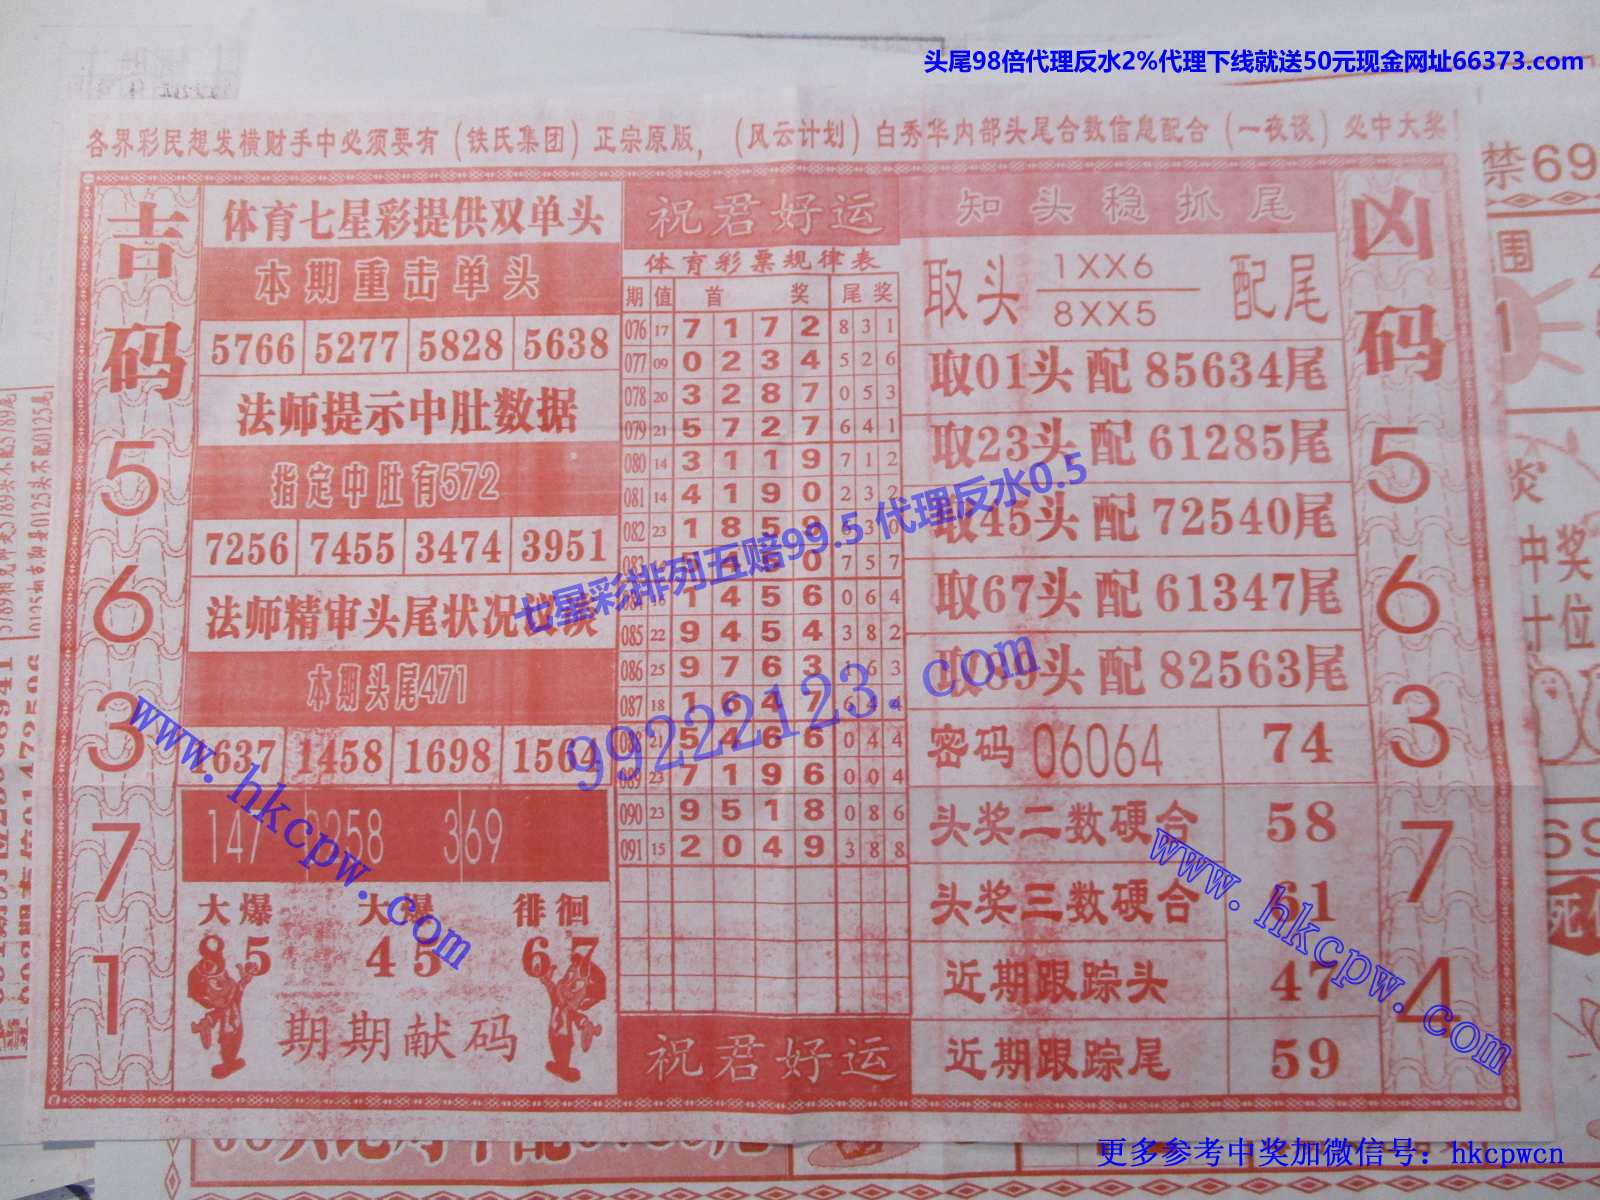 头尾98倍代理反水2%代理下线就送50元现金网址66373.com
各界彩民想发横财手中必须要有（铁氏集团）正宗原版，（风云计划）白秀华内部头尾合数信息配合（一夜谈）必中大奖
吉码
5
6
3
7
1
体育七星彩提供双单头
本期重击单头
5766 5277 5828 5638
法师提示中肚数据
指定中肚有572
7256 7455 3474 3951
法师精审头尾状况
本期头尾471
1637 1458 1698 1564
147 258 369
大爆 大爆 徘徊
85 45 67
期期献码
祝君好运
体育彩票规律表
期 值 首 奖 尾 奖
076 17 7 1 7 2 8 3 1
077 09 0 2 3 4 5 2 6
078 20 3 2 8 7 0 5 3
079 21 5 7 2 7 6 4 1
080 14 3 1 1 9 7 1 2
081 14 4 1 9 0 2 3 2
082 23 1 8 5 9 3 0
083 4 0 7 5 7
1 4 5 6 0 6 4
085 22 9 4 5 4 3 8 2
086 25 9 7 6 3 1 6 3
087 18 1 6 4 7 4 4
088 21 5 4 6 6 0 4 4
089 23 7 1 9 6 0 0 4
090 23 9 5 1 8 0 8 6
091 15 2 0 4 9 3 8 8
祝君好运
知头稳抓尾
取头 1XX6 配尾
8XX5
取01头 配 85634尾
取23头 配 61285尾
取45头 配 72540尾
取67头 配 61347尾
取89头 配 82563尾
密码 06064 74
头奖二数硬合 58
头奖三数硬合 61
近期跟踪头 47
近期跟踪尾 59
凶码
5
6
3
7
4
七星彩排列五赔99.5 代理反水0.5
99222123.com
www.hkcpw.com
www.hkcpw.com
禁69
围
1
炎
中奖
十位
69
更多参考中奖加微信号：hkcpwcn